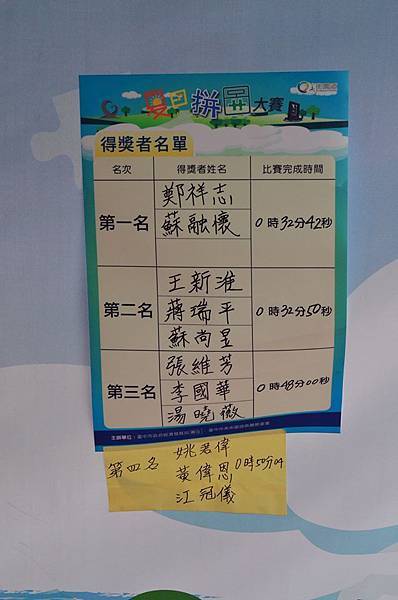 夏日拼圖大賽
得獎者名單
名次 得獎者姓名 比賽完成時間
第一名 鄭祥志 蘇融懷 0時32分42秒
第二名 王新淮 蔣瑞平 蘇尚昱 0時32分50秒
第三名 張維芳 李國華 湯曉薇 0時48分00秒
主辦單位：臺中市政府經濟發展局
第四名 姚君偉 黃偉恩 江冠儀 0時50分04